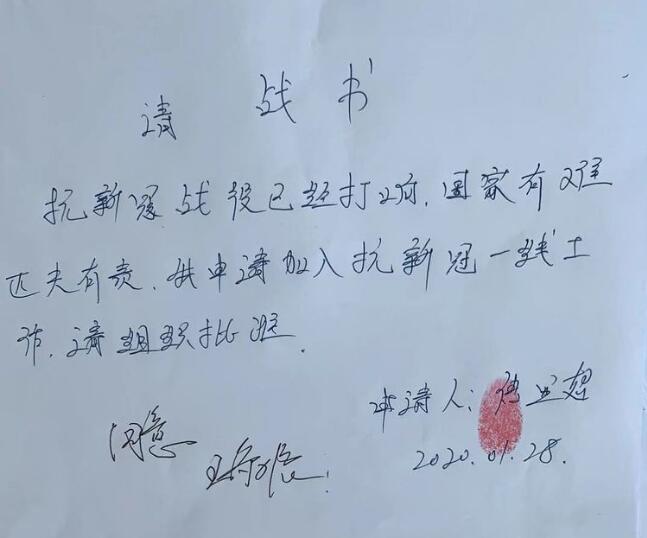 请战书
抗新冠战役已经打响，国家有难
匹夫有责，我申请加入抗新冠一线工
作，请组织批准．
申请人：
同意
2020.01.28.